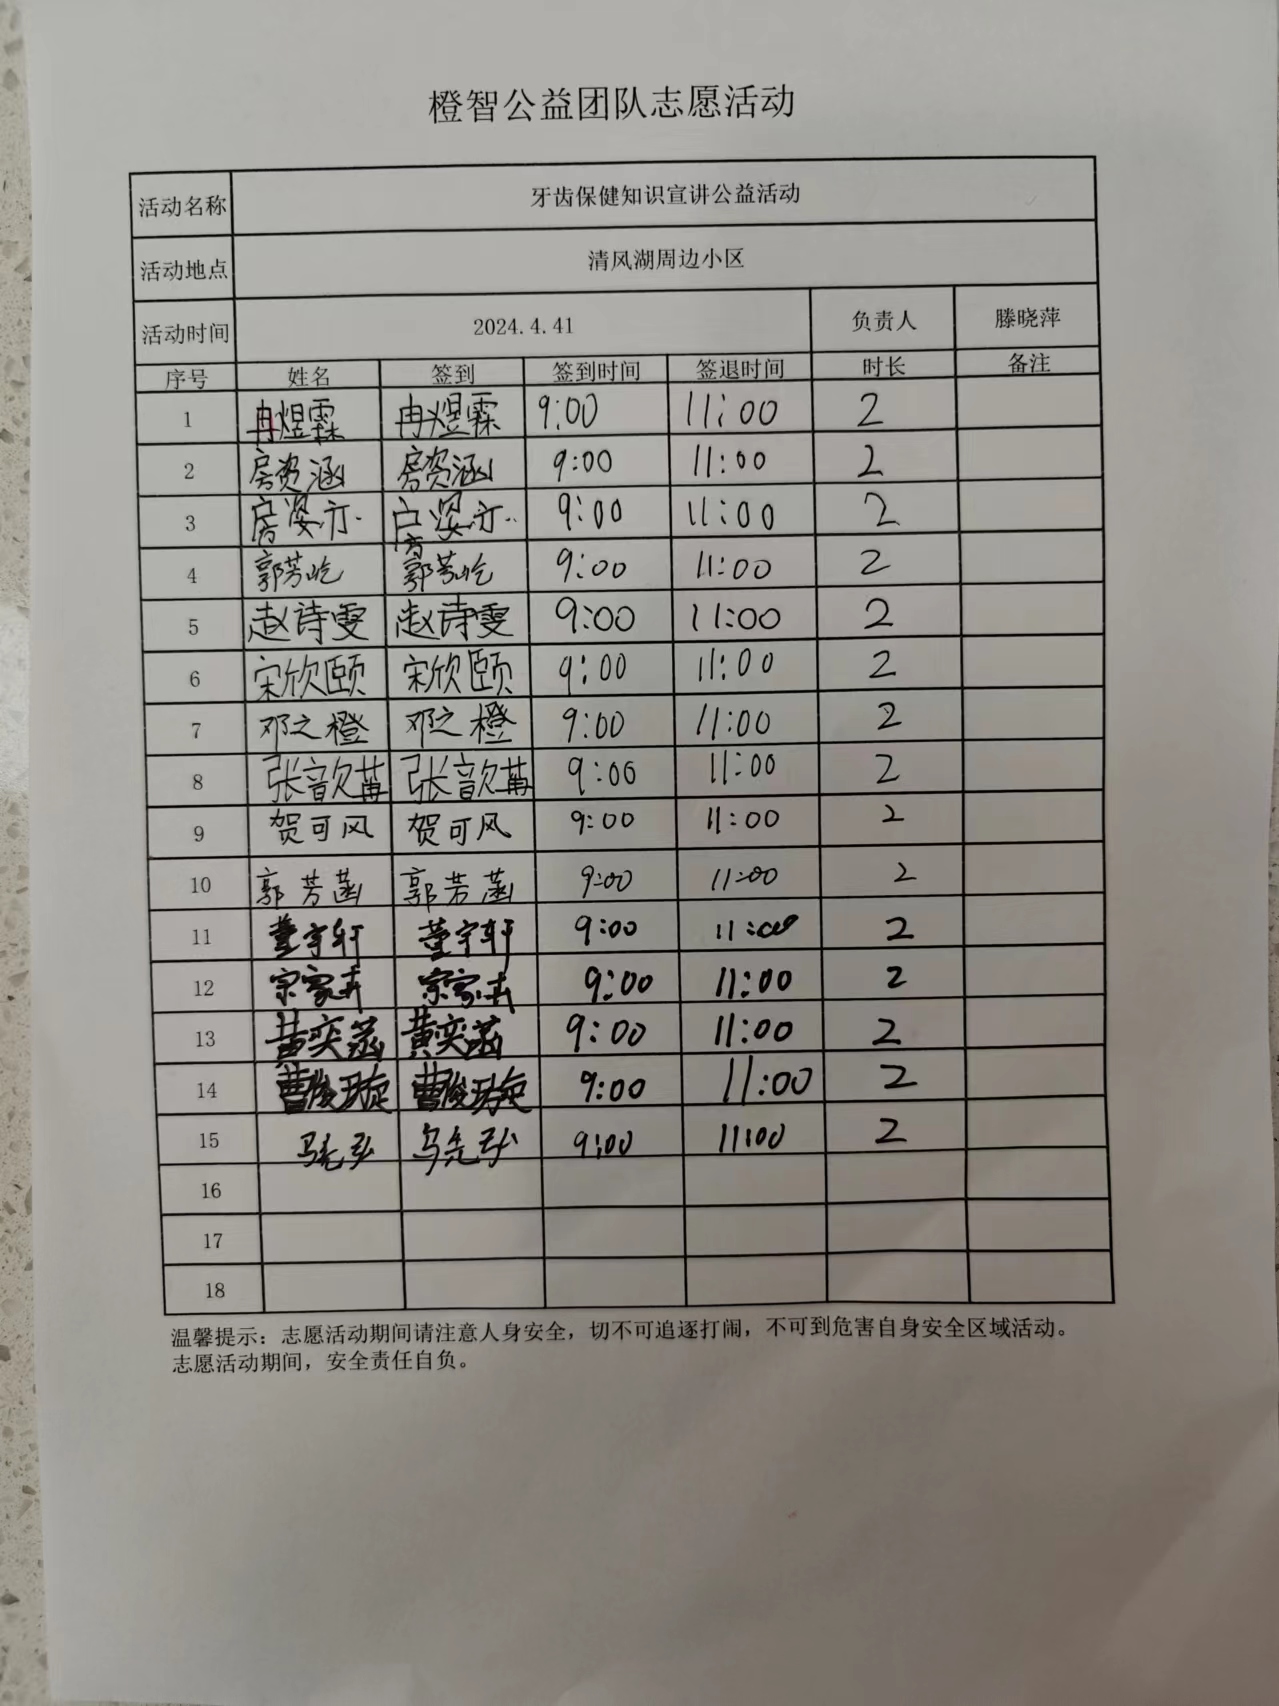 橙智公益团队志愿活动
活动名称 牙齿保健知识宣讲公益活动
活动地点 清风湖周边小区
活动时间 2024.4.41 负责人 滕晓萍
序号 姓名 签到 签到时间 签退时间 时长 备注
1 冉煜霖 冉煜霖 9:00 11:00 2
2 房资涵 房资涵 9:00 11:00 2
3 9:00 11:00 2
4 郭芳屹 郭芳屹 9:00 11:00 2
5 赵诗雯 赵诗雯 9:00 11:00 2
6 宋欣颐 宋欣颐 9:00 11:00 2
7 邓之橙 邓之橙 9:00 11:00 2
8 张歆苒 张歆苒 9:00 11:00 2
9 贺可风 贺可风 9:00 11:00 2
10 郭芳菡 郭芳菡 9:00 11:00 2
11 董宇轩 董宇轩 9:00 11:00 2
12 9:00 11:00 2
13 黄奕菡 黄奕菡 9:00 11:00 2
14 9:00 11:00 2
15 9:00 11:00 2
16
17
18
温馨提示：志愿活动期间请注意人身安全，切不可追逐打闹，不可到危害自身安全区域活动。
志愿活动期间，安全责任自负。